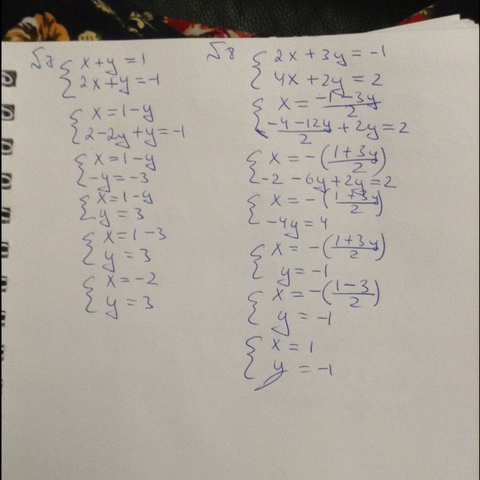 √7 { x+y=1
2x+y=-1
{ x=1-y
2-2y+y=-1
{ x=1-y
-y=-3
{ x=1-y
y=3
{ x=1-3
y=3
{ x=-2
y=3
√8 { 2x+3y=-1
4x+2y=2
{ x=\frac{-1-3y}{2}
\frac{-4-12y}{2}+2y=2
{ x=-(\frac{1+3y}{2})
-2-6y+2y=2
{ x=-(\frac{1+3y}{2})
-4y=4
{ x=-(\frac{1+3y}{2})
y=-1
{ x=-(\frac{1-3}{2})
y=-1
{ x=1
y=-1